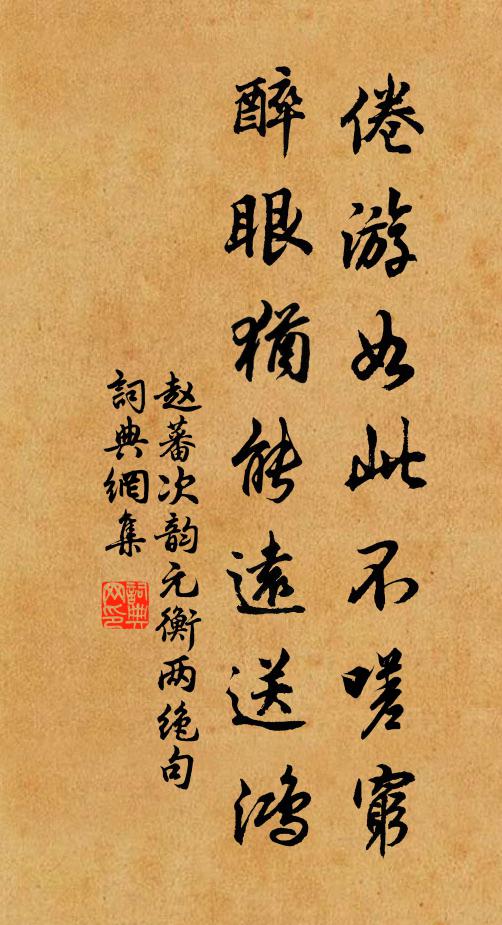 倦游如此不嗟窮
醉眼猶能遠送鴻
赵蕃次韵元衡两绝句
詞典網集
詞典網印